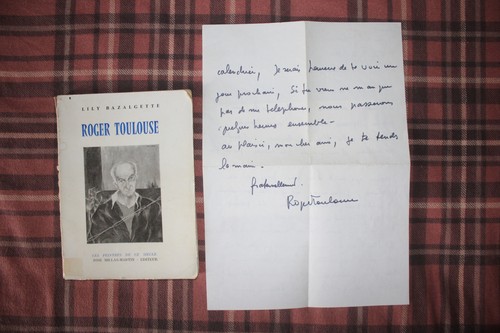 LILY BAZALGETTE
ROGER TOULOUSE
LES PEINTRES DE LA
ÉDITEUR
calendrier, Je serais heureux de te voir un
jour prochain, Si tu viens ne manque
pas de me telephoner, nous passerons
quelques heures ensemble -
au plaisir, mon cher ami, je te tends
la main.
fraternellement
Roger Toulouse